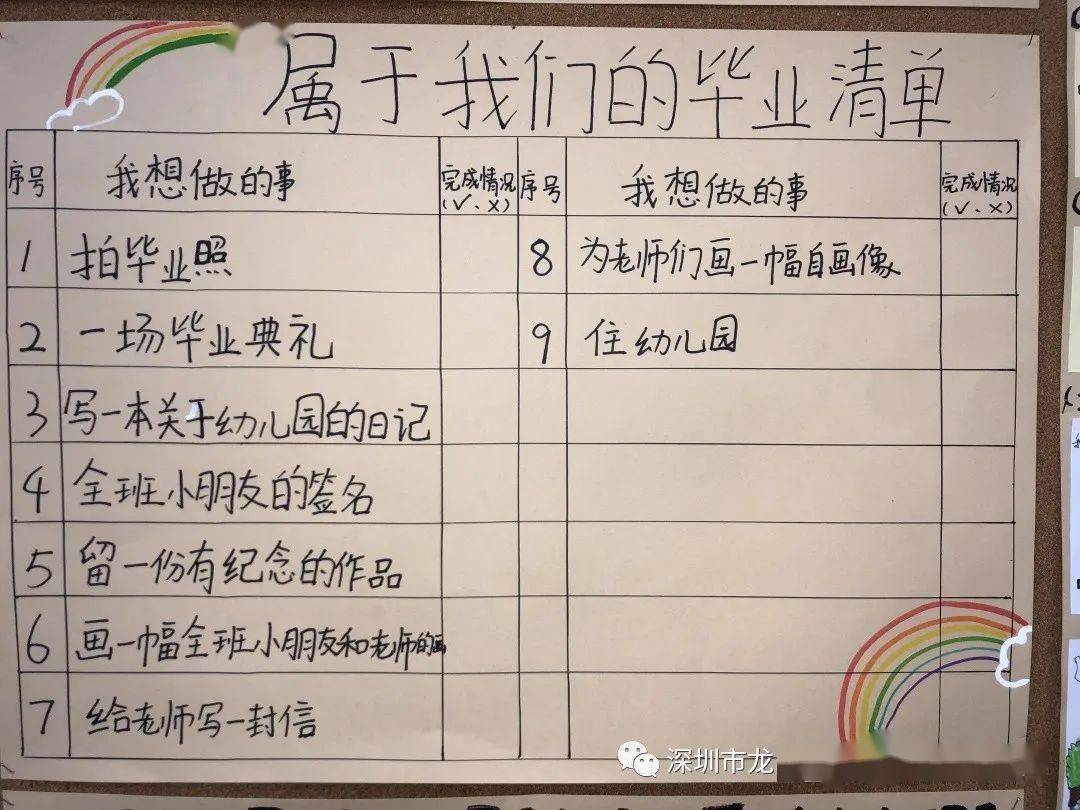 属于我们的毕业清单
序号 我想做的事 完成情况 序号 我想做的事 完成情况
(√、×) (√、×)
1 拍毕业照 8 为老师们画一幅自画像
2 一场毕业典礼 9 住幼儿园
3 写一本关于幼儿园的日记
4 全班小朋友的签名
5 留一份有纪念的作品
6 画一幅全班小朋友和老师的画
7 给老师写一封信
深圳市龙